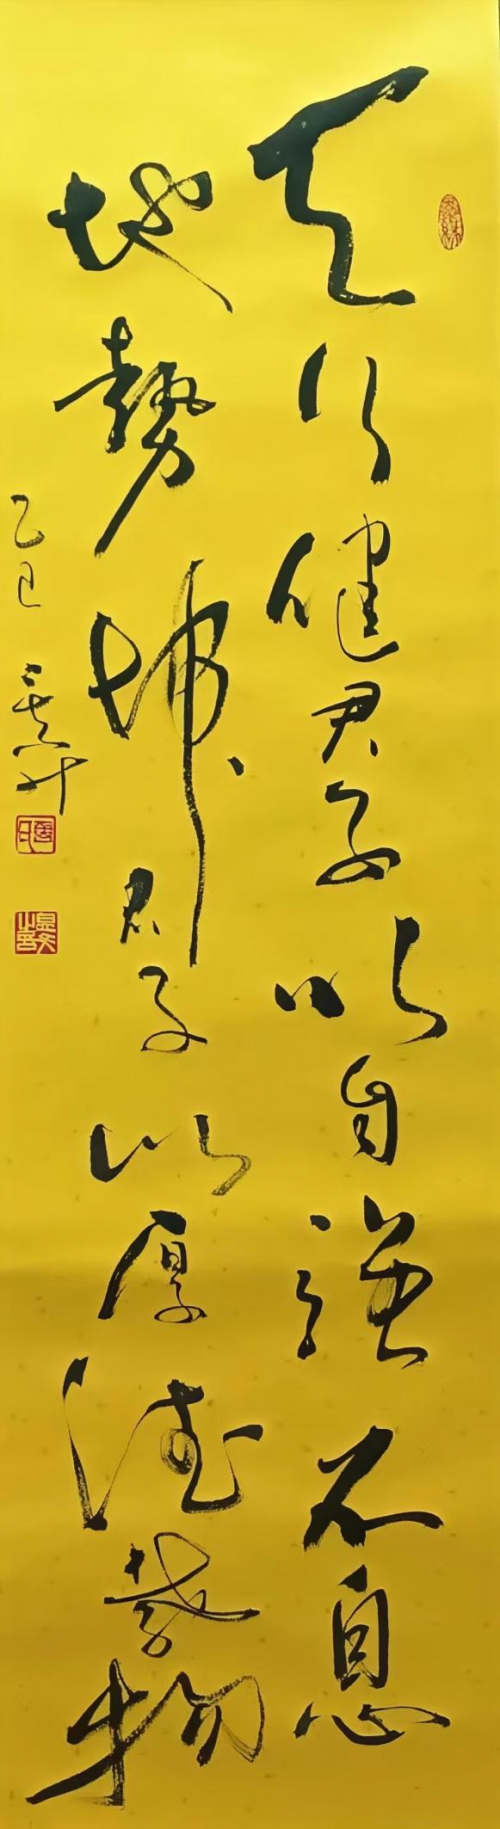 天行健君子以自强不息
地势坤君子以厚德载物
乙巳